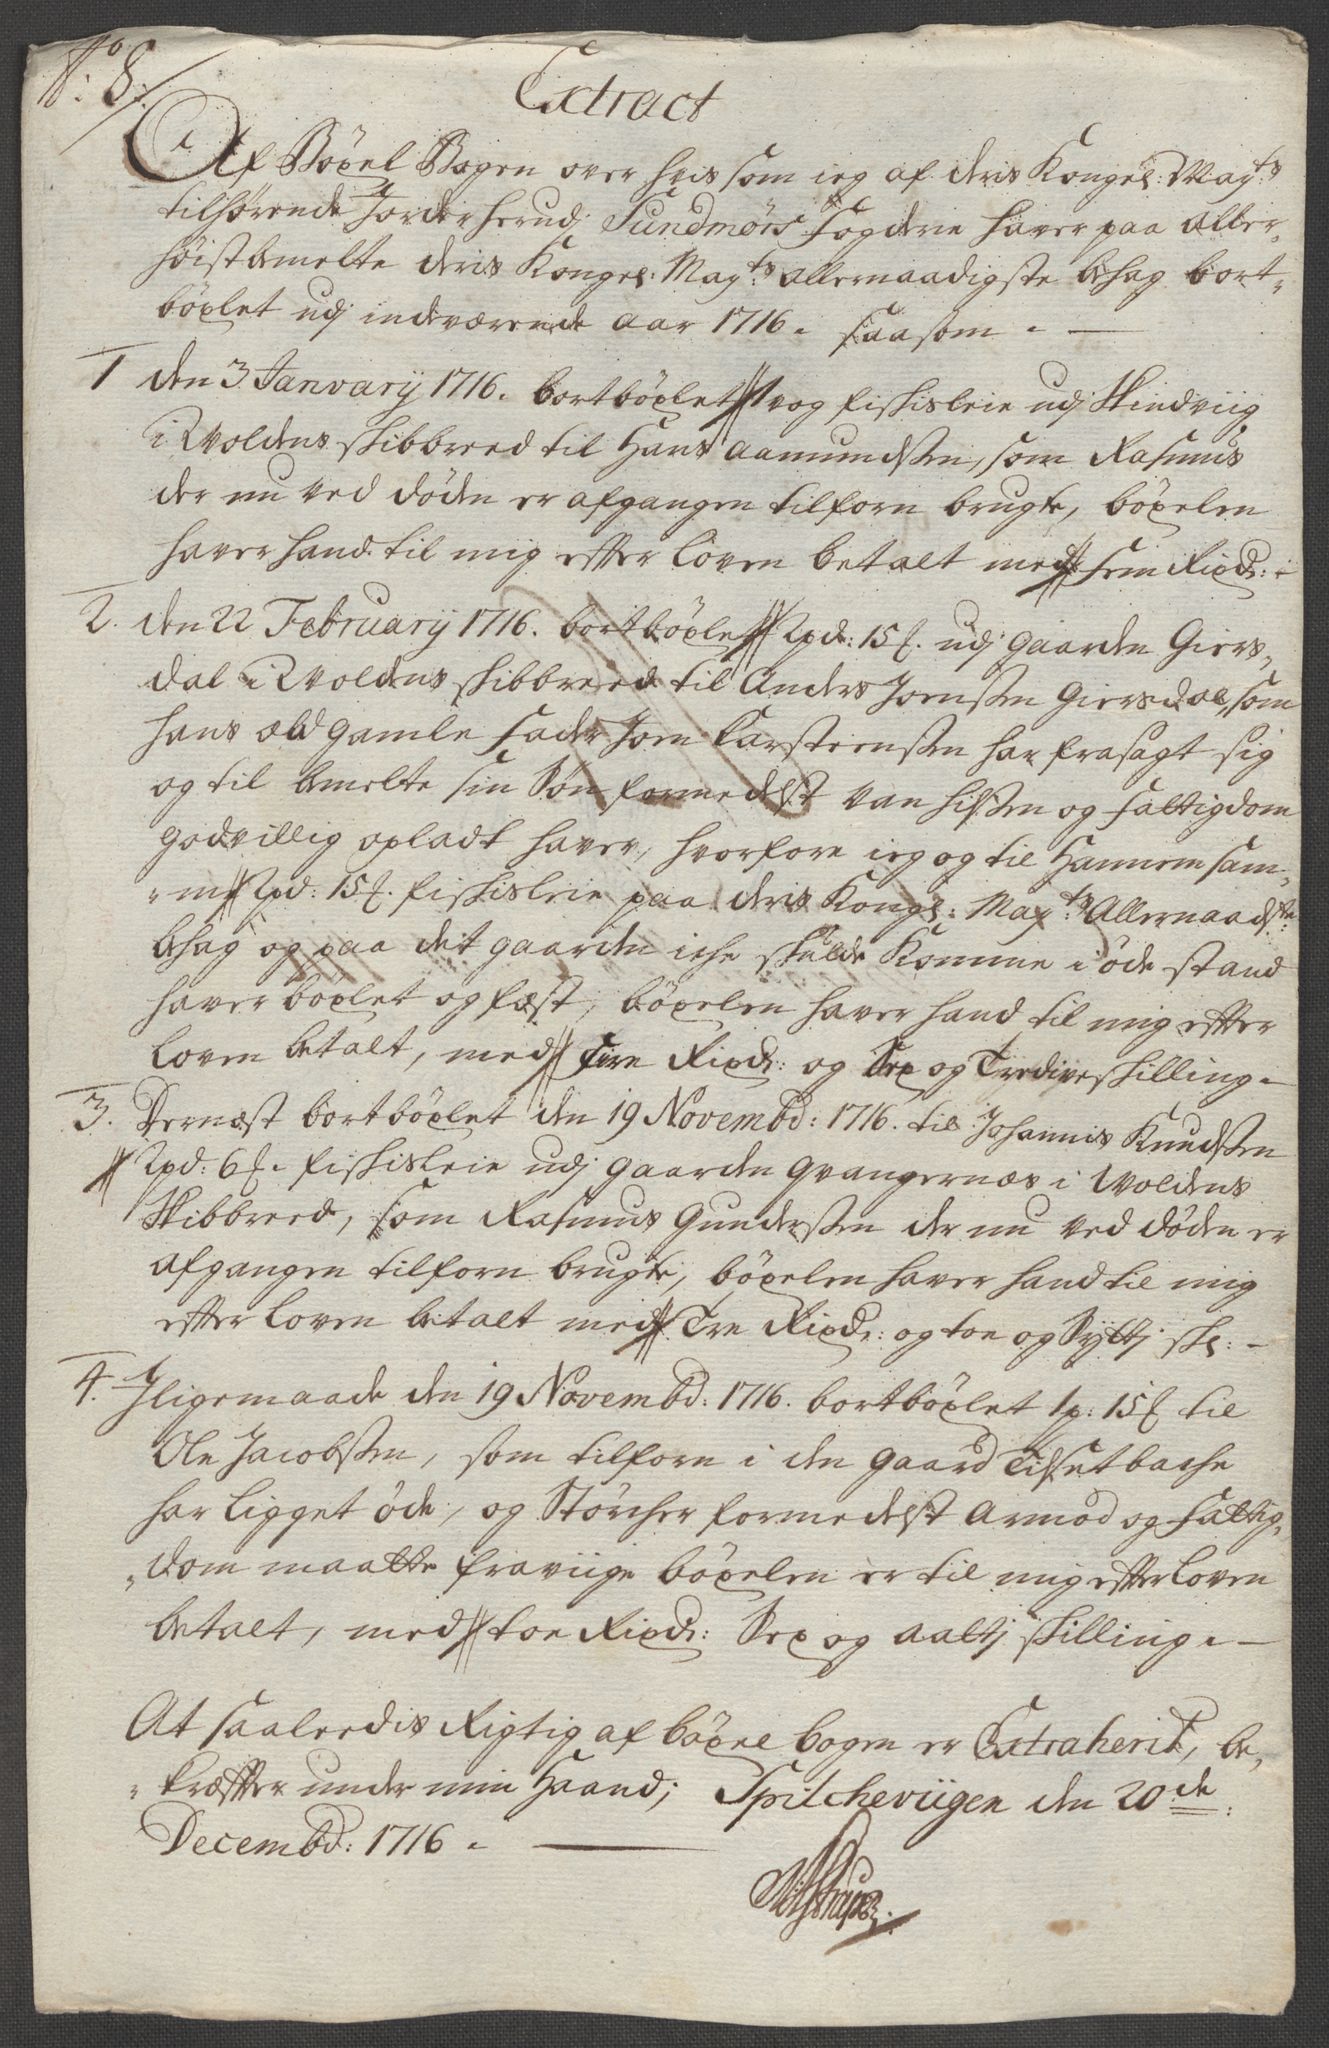 No. 8.
Extract
Af Böxel Bogen over hvis som ieg af deris Kongel: Mayts
tilhørende Jorder herudj Sundmørs Fogderie haver paa aller-
höistbemelte deris Kongel: Mayts allernaadigste behag bort-
böxlet udj indeværende aar 1716. saasom.
1 den 3 Janvarij 1716. bortböxlet 1 vog fiskisleie udj Skindviig
i Woldens skibbreed til Hans Aamundssen, som Rasmus
der nu ved døden er afgangen tilforn brugte, böxelen
haver hand til mig efter loven betalt med fem Rixdr:
2. den 22 Februarij 1716. bortböxlet 2pd: 15 f. udj gaarden Giers-
dal i Woldens skibbreed til Anders Joenssen Giersdal, som
hans old gamle fader Joen Carsteenssen har frasagt sig
og til bemelte sin Sön formedelst Van og fattigdom
godvillig opladt haver, hvorfore ieg og til Hannem sam-
-me 2pd: 15 f. fiskisleie paa deris Kongl: Mayts Allernaadste
behag og paa det gaarden iche skulde Komme i öde stand
haver böxlet og fæst, böxelen haver hand til mig efter
loven betalt, med fire Rixdr: og Sex og Tredive skilling.
3. Dernæst bortböxlet den 19 Novembd: 1716. til Johannis Knudssen
2pd: 6 f. fiskisleie udj gaarden Qvangernæs i Woldens
Skibbreed, som Rasmus Gunderssen der nu ved döden er
afgangen tilforn brugte, böxelen haver hand til mig
efter loven betalt med Tre Rixdr: og toe og Syttj sk:
4. Jligemaade den 19 Novembd: 1716. bortböxlet 1p: 15 f til
Ole Jacobssen, som tilforn i den gaard Tissetbache
har ligget öde, og Störcher formedelst Armod og fattig-
-dom maatte fraviige böxelen er til mig efter loven
betalt, med toe Rixdr: Sex og aattj skilling.
At saaleedis Rigtig af böxne bogen er Extraherit, be-
-kræfter under min Haand; Spilcheviigen den 20de:
Decembd: 1716.